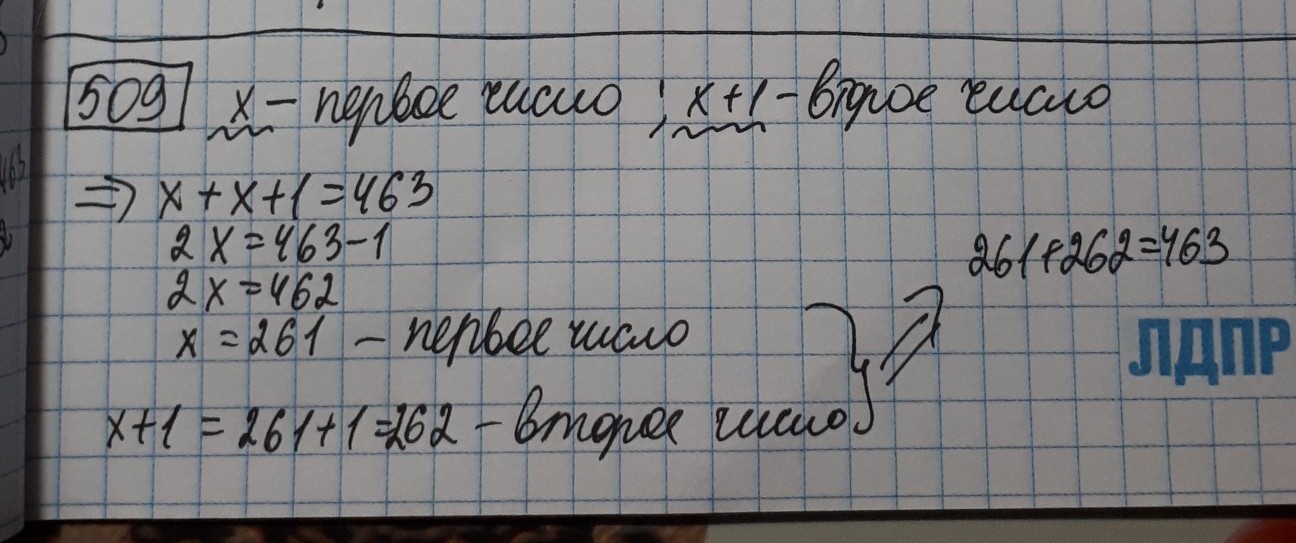 509 x – первое число ; x+1 – второе число
⇒ x + x + 1 = 463
2x = 463 - 1
2x = 462
x = 261 – первое число
261 + 262 = 463
ЛДПР
x + 1 = 261 + 1 = 262 – второе число
463